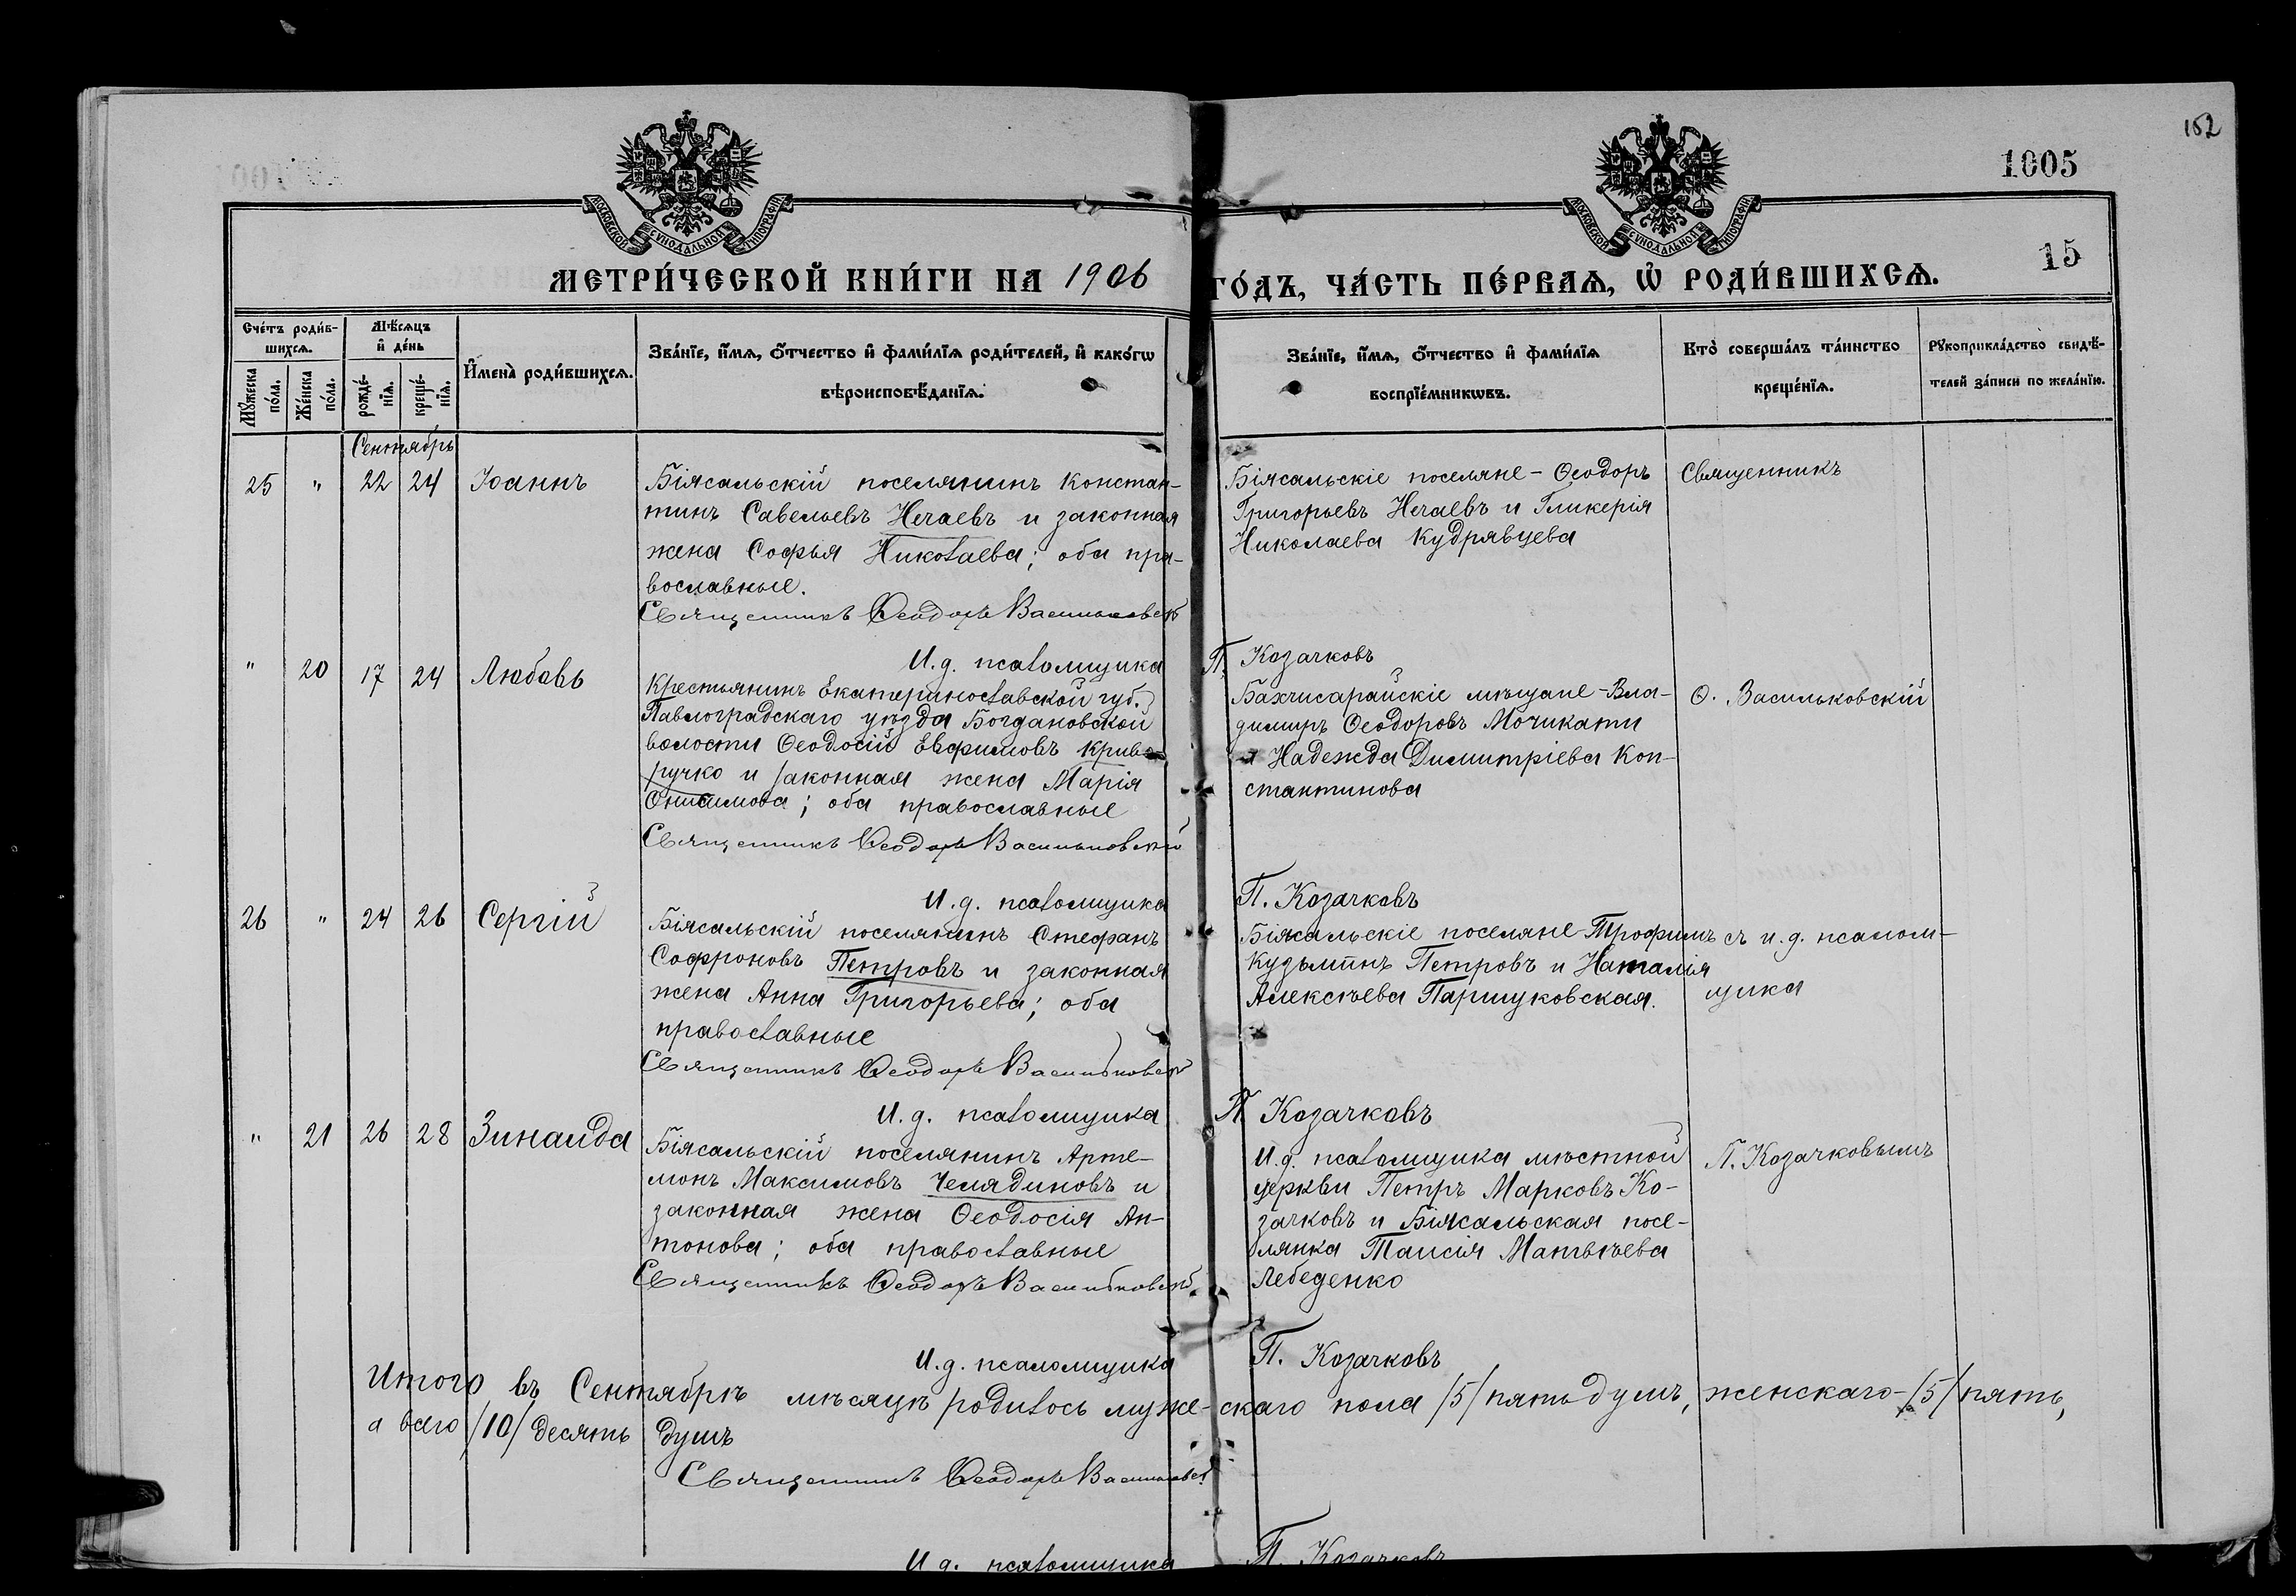 152
1005
15
МОСКОВСКОЙ СѴНОДАЛЬНОЙ ТИПОГРАФІИ
МОСКОВСКОЙ СѴНОДАЛЬНОЙ ТИПОГРАФІИ
МЕТРИ́ЧЕСКОЙ КНИ́ГИ НА 1906 ГО́ДЪ, ЧА́СТЬ ПЕ́РВАѦ, Ѡ҆ РОДИ́ВШИХСѦ.
Сче́тъ роди́в-
шихсѧ.
Мꙋ́жеска
по́ла.
Же́нска
по́ла.
Мѣ́сѧцъ
и҆ де́нь
рожде́-
нїѧ.
креще́-
нїѧ.
И҆мена̀ роди́вшихсѧ.
Зва́нїе, и҆́мѧ, ѻ҆́тчество и҆ фами́лїѧ роди́телей, и҆ како́гѡ
вѣроисповѣ́данїѧ.
Зва́нїе, и҆́мѧ, ѻ҆́тчество и҆ фами́лїѧ
воспрїе́мникѡвъ.
Кто̀ соверша́лъ та́инство
креще́нїѧ.
Рꙋкоприкла́дство свидѣ́-
телей за́писи по жела́нїю.
Сентябрь
25 " 22 24 Іоаннъ
Біясальскій поселянинъ Констан-
тинъ Савельевъ Нечаевъ и законная
жена Софья Николаева; оба пра-
вославные.
Священникъ Ѳеодоръ Васильковскій
И.д. псаломщика П. Козачковъ
Біясальскіе поселяне - Ѳеодоръ
Григорьевъ Нечаевъ и Гликерія
Николаева Кудрявцева
Священникъ
" 20 17 24 Любовь
Крестьянинъ Екатеринославской губ.
Павлоградскаго уѣзда Богдановской
волости Ѳеодосій Евфимовъ Криво
ручко и законная жена Марія
Онисимова; оба православные
Священникъ Ѳеодоръ Васильковскій
И.д. псаломщика П. Козачковъ
Бахчисарайскіе мѣщане - Вла-
димиръ Ѳеодоровъ Мочикати
и Надежда Димитріева Кон-
стантинова
Ѳ. Васильковскій
26 " 24 26 Сергій
Біясальскій поселянинъ Стефанъ
Софроновъ Петровъ и законная
жена Анна Григорьева; оба
православные
Священникъ Ѳеодоръ Васильковскій
И.д. псаломщика П. Козачковъ
Біясальскіе поселяне Трофимъ
Кузьминъ Петровъ и Наталія
Алексѣева Паршуковская.
съ и.д. псалом-
щика
" 21 26 28 Зинаида
Біясальскій поселянинъ Арте-
монъ Максимовъ Челядиновъ и
законная жена Ѳеодосія Ан-
тонова; оба православные
Священникъ Ѳеодоръ Васильковскій
И.д. псаломщика П. Козачковъ
И.д. псаломщика мѣстной
церкви Петръ Марковъ Ко-
зачковъ и Біясальская посе-
лянка Таисія Матвѣева
Лебеденко
П. Козачковымъ
Итого въ Сентябрѣ мѣсяцѣ родилось муже-скаго пола /5/ пять душъ, женскаго - /5/ пять,
а всего /10/ десять душъ
Священникъ Ѳеодоръ Васильковскій
И д. псаломщика П. Козачковъ